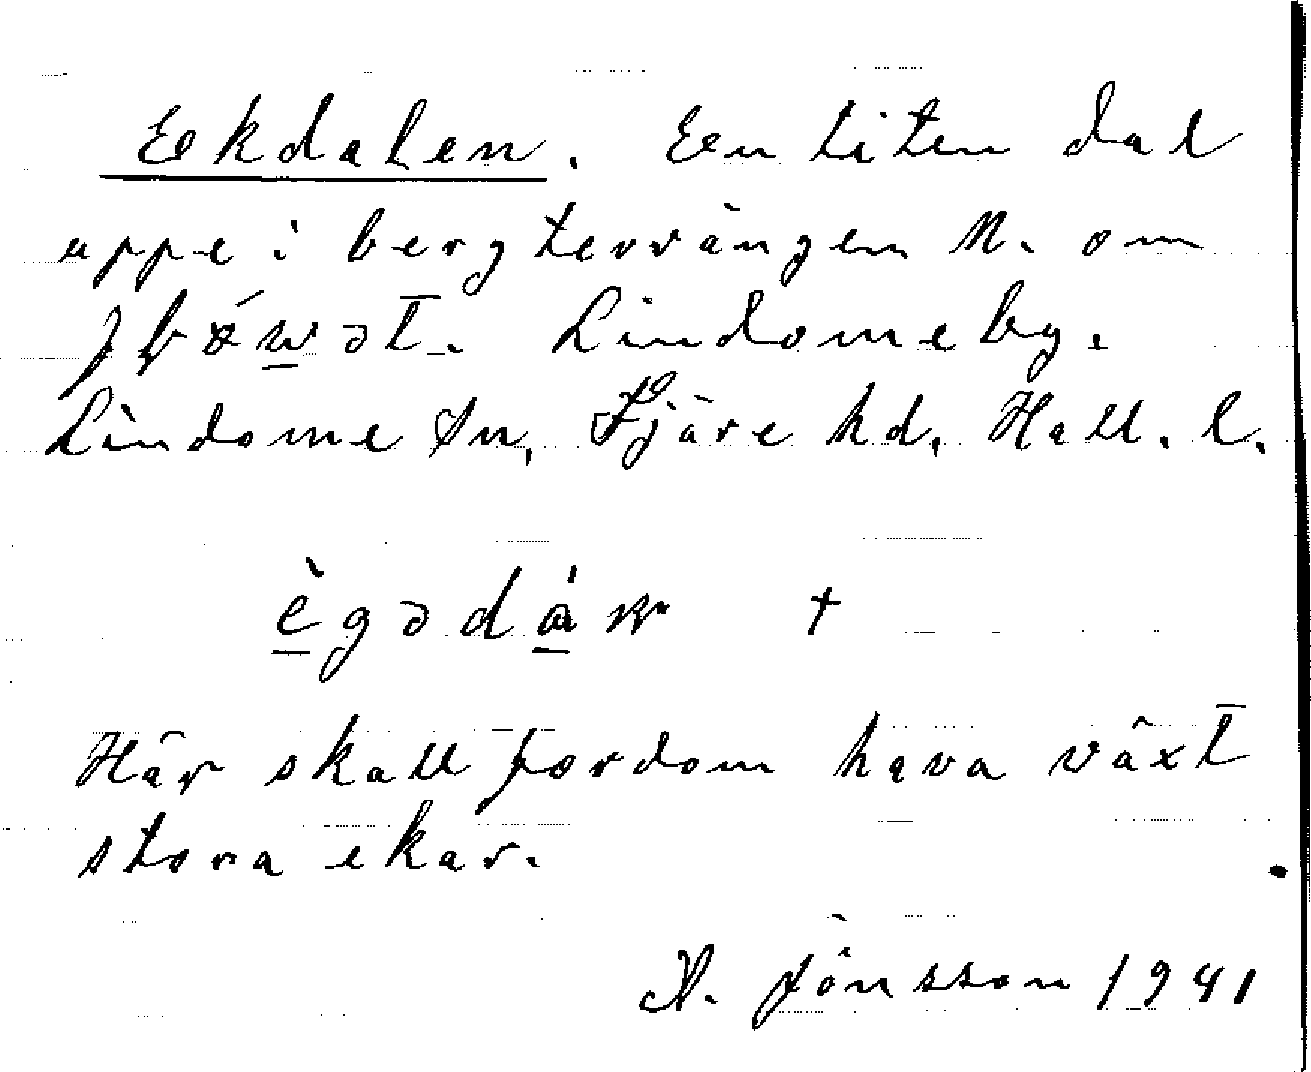 Ekdalen. En liten dal
uppe i bergterrängen N. om
Lindome by.
Lindome sn, Fjäre hd. Hall. l.
ègədàw +
Här skall fordom hava växt
stora ekar.
N. Jönsson 1941